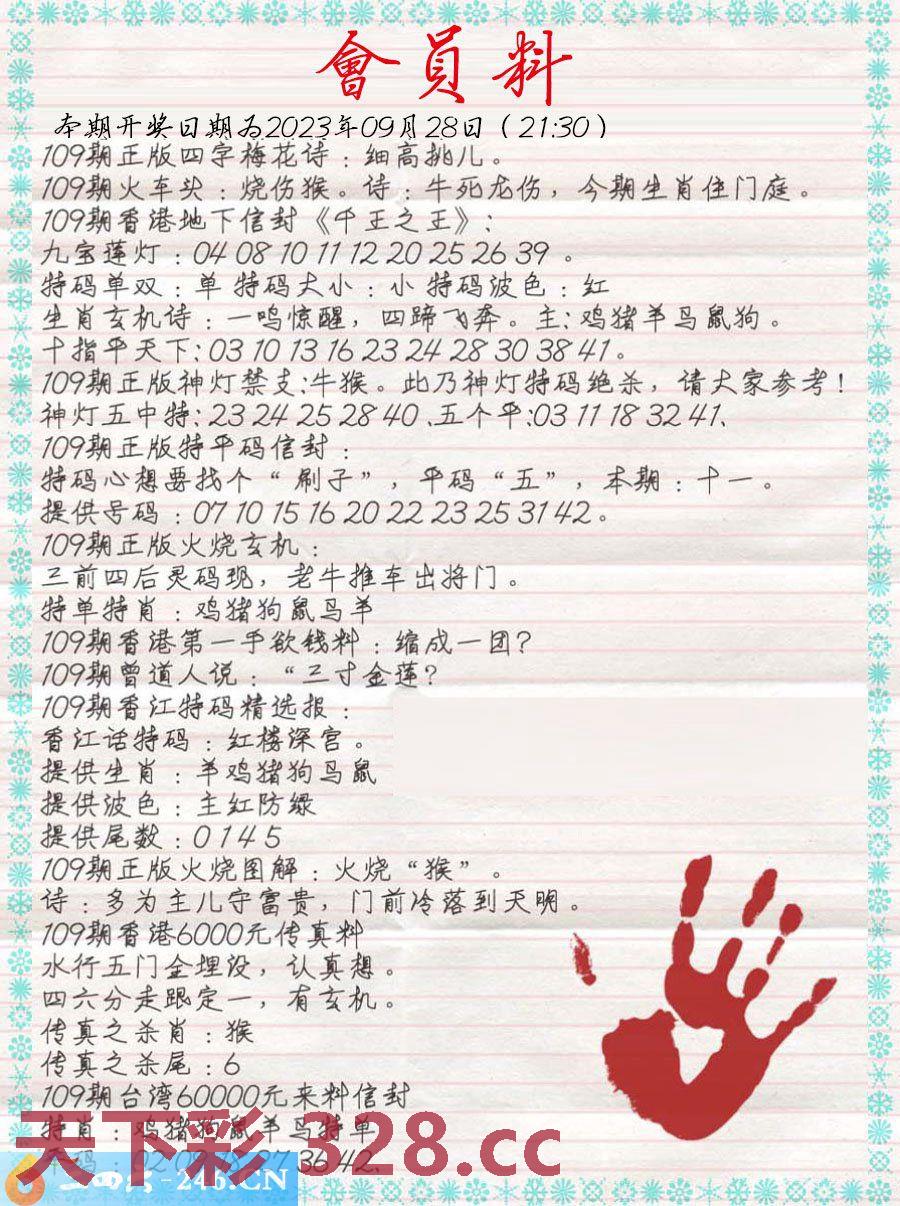 會員料
本期开奖日期为2023年09月28日（21:30）
109期正版四字梅花诗：细高挑儿。
109期火车头：烧伤猴。诗：牛死龙伤，今期生肖住门庭。
109期香港地下信封《千王之王》:
九宝莲灯：04 08 10 11 12 20 25 26 39 。
特码单双：单 特码大小：小 特码波色：红
生肖玄机诗：一鸣惊醒，四蹄飞奔。主: 鸡猪羊马鼠狗。
十指平天下: 03 10 13 16 23 24 28 30 38 41。
109期正版神灯禁支:牛猴。此乃神灯特码绝杀，请大家参考！
神灯五中特: 23 24 25 28 40 .五个平:03 11 18 32 41、
109期正版特平码信封：
特码心想要找个“ 刷子”，平码“五”，本期：十一。
提供号码：07 10 15 16 20 22 23 25 31 42。
109期正版火烧玄机：
三前四后灵码现，老牛推车出将门。
特单特肖：鸡猪狗鼠马羊
109期香港第一手欲钱料：缩成一团？
109期曾道人说：“三寸金莲？
109期香江特码精选报：
香江话特码：红楼深宫。
提供生肖：羊鸡猪狗马鼠
提供波色：主红防绿
提供尾数：0 1 4 5
109期正版火烧图解：火烧“猴”。
诗：多为主儿守富贵，门前冷落到天明。
109期香港6000元传真料
水行五门金埋没，认真想。
四六分走跟定一，有玄机。
传真之杀肖：猴
传真之杀尾：6
109期台湾60000元来料信封
特肖：鸡猪狗鼠羊马特单
36 42、
天下彩 328.cc
-246.CN